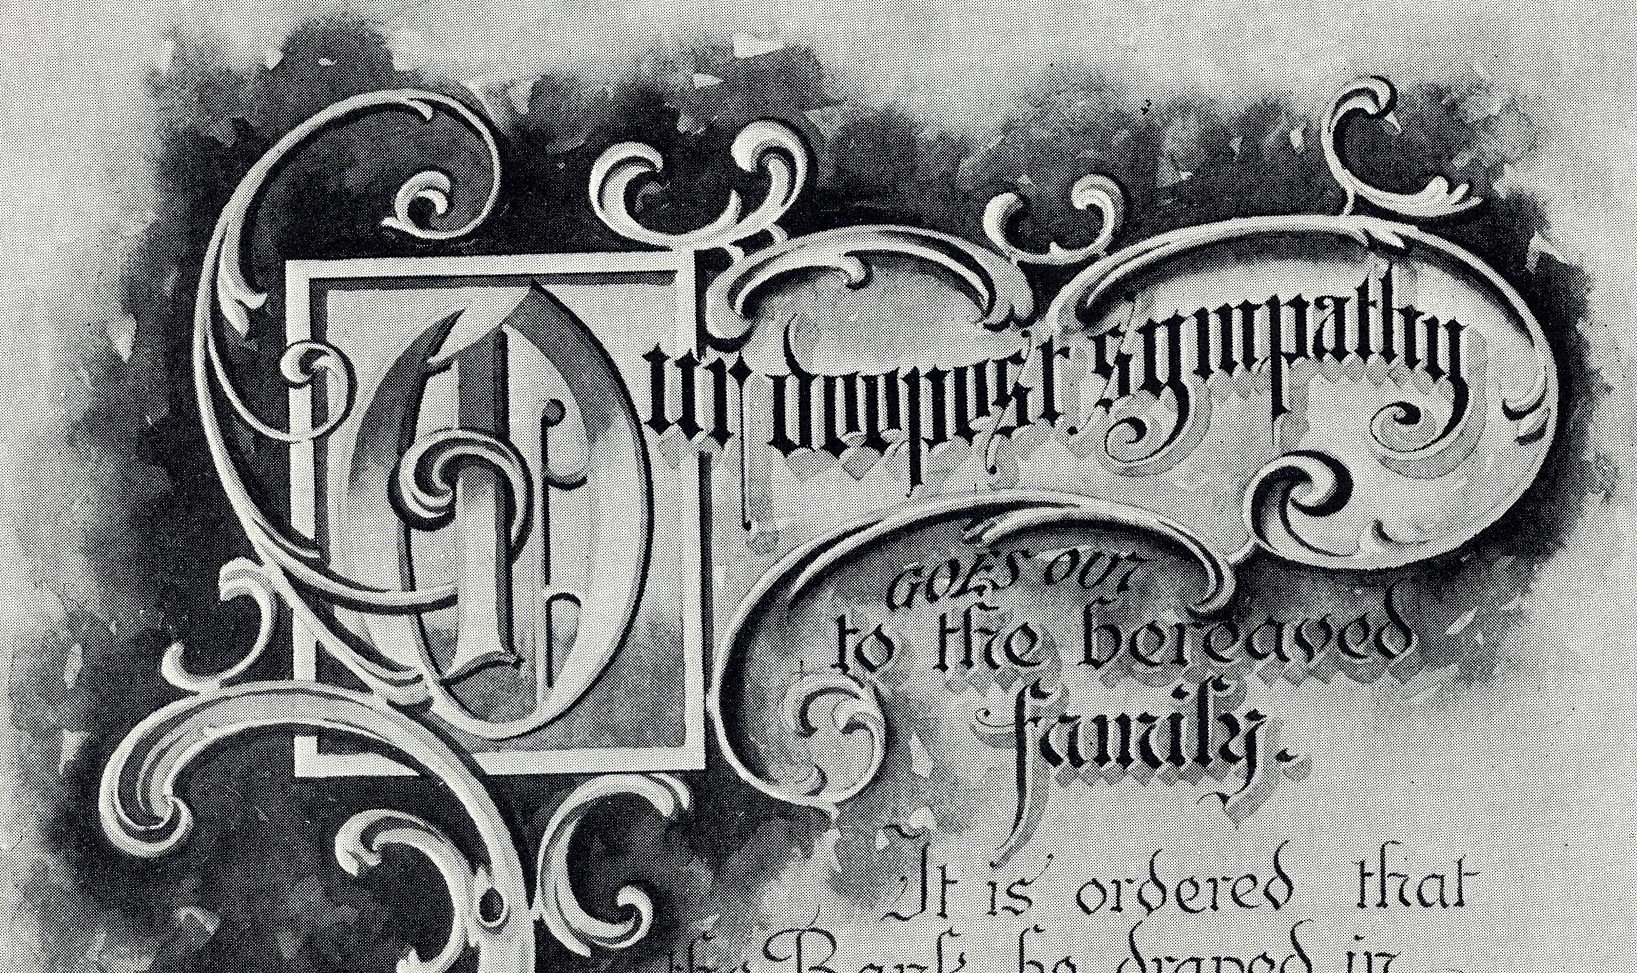 Our deepest sympathy
GOES OUT
to the bereaved
family.
It is ordered that
the Bank be draped in